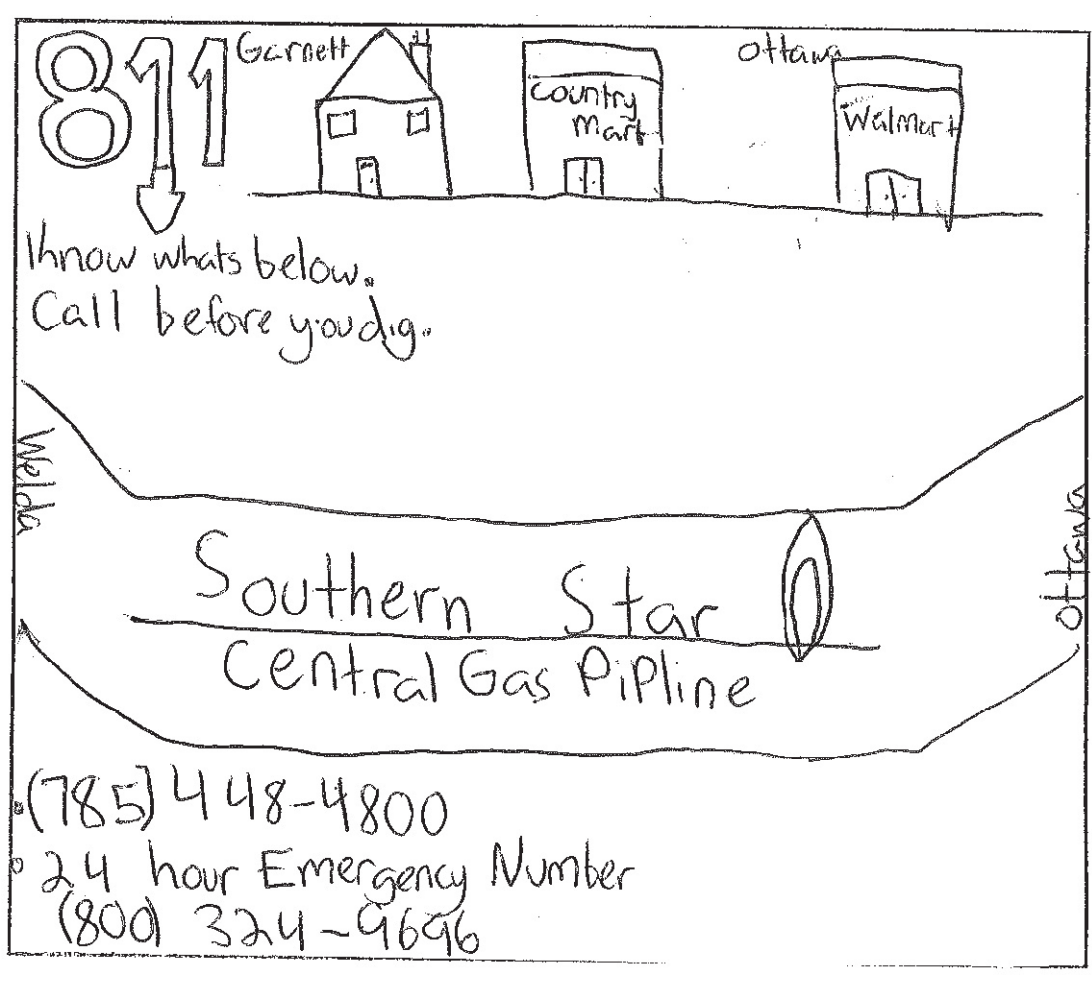 811
Garnett
Country
Mart
Ottawa
Walmart
Know whats below.
Call before you dig.
Welda
Southern Star
Central Gas PiPline
Ottawa
(785) 448-4800
24 hour Emergency Number
(800) 324-9696